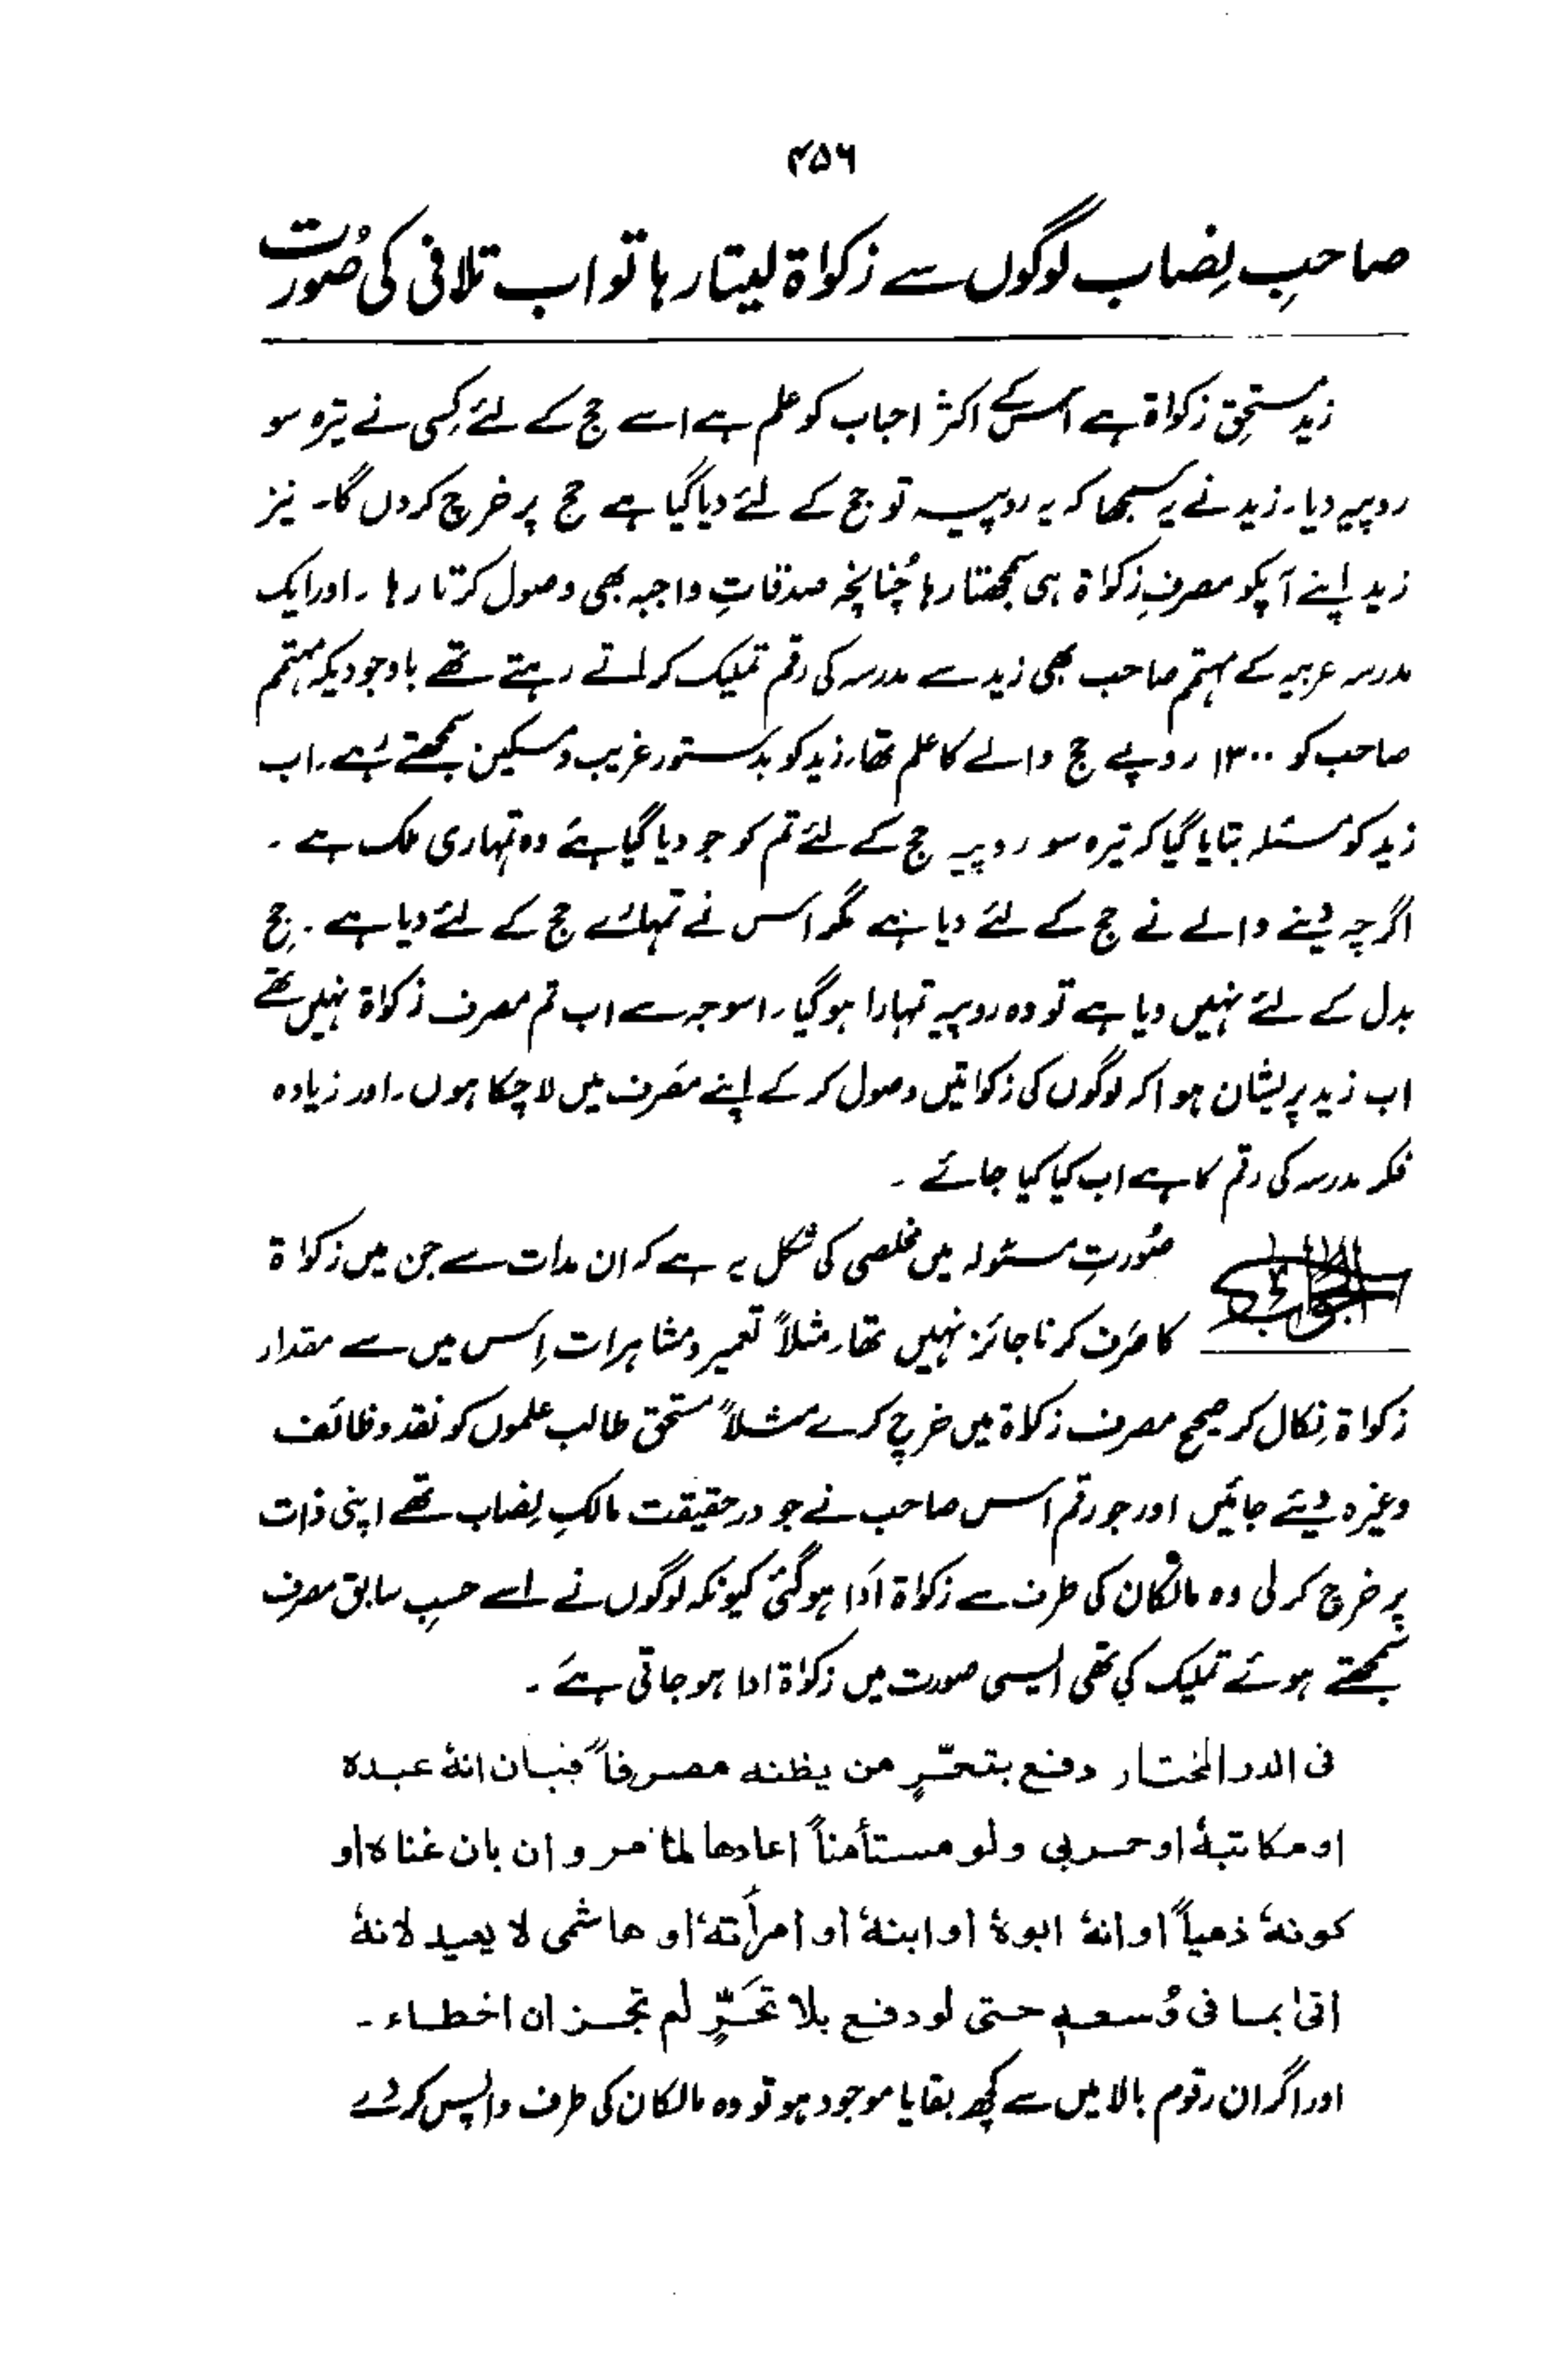 ۴۵۶
صاحبِ نِصاب لوگوں سے زکواۃ لیتا رہا تو اب تلافی کی صُورت
زید مستحِق زکواۃ ہے اس کے اکثر احباب کو علم ہے اسے حج کے لئے کِسی نے تیرہ سو
روپیہ دیا۔ زید نے یہ سمجھا کہ یہ روپیہ تو حج کے لئے دیا گیا ہے حج پر خرچ کر دں گا۔ نیز
زید اپنے آپکو مصرفِ زکواۃ ہی سمجھتا رہا چُنانچہ صدقاتِ واجبہ بھی وصول کرتا رہا۔ اور ایک
مدرسہ عربیہ کے مہتمم صاحب بھی زید سے مدرسہ کی رقم تملیک کراتے رہتے تھے باوجودیکہ مہتمم
صاحب کو ۱۳۰۰ روپے حج والے کا علم تھا۔ زید کو بدستور غریب و مسکین سمجھتے رہے۔ اب
زید کو مسئلہ بتایا گیا کہ تیرہ سو روپیہ حج کے لئے تم کو جو دیا گیا ہے وہ تمہاری ملک ہے۔
اگرچہ دینے والے نے حج کے لئے دیا ہے مگر اس نے تمہارے حج کے لئے دیا ہے۔ حج
بدل کے لئے نہیں دیا ہے تو وہ روپیہ تمہارا ہو گیا۔ اسوجہ سے اب تم مصرف زکاۃ نہیں تھے
اب زید پریشان ہوا کہ لوگوں کی زکواتیں وصول کر کے اپنے مَصرف میں لا چکا ہوں۔ اور زیادہ
فکر مدرسہ کی رقم کا ہے اب کیا کیا جائے۔
الجواب صُورتِ مسئولہ میں مخلصی کی شکل یہ ہے کہ ان مدات سے جن میں زکواۃ
کا صَرف کرنا جائز نہیں تھا۔ مثلاً تعمیر و مشاہرات اِس میں سے مقدار
زکواۃ نِکال کر صحیح مصرف زکاۃ میں خرچ کرے مثلاً مستحق طالب علموں کو نقد وظائف
وغیرہ دیئے جائیں اور جو رقم اس صاحب نے جو درحقیقت مالکِ نِصاب تھے اپنی ذات
پر خرچ کر لی وہ مالکان کی طرف سے زکواۃ اَدا ہو گئی کیونکہ لوگوں نے اسے حسبِ سابق مصرف
سمجھتے ہوئے تملیک کی تھی ایسی صورت میں زکوٰۃ ادا ہو جاتی ہے۔
فی الدر المختار دفع بتحرٍّ من یظنہ مصرفاً فبان انہٗ عبدہ
او مکاتبہٗ او حربی ولو مستأمناً اعادھا لما مر و ان بان غناہ او
کونہٗ ذمیاً او انہٗ ابوہٗ او ابنہٗ او امرأتہٗ او ھاشمی لا یعید لانہٗ
اتیٰ بما فی وُسعہٖ حتی لو دفع بلا تحَرٍّ لم تجز ان اخطاء۔
اور اگر ان رقوم بالا میں سے کچھ بقایا موجود ہو تو وہ مالکان کی طرف واپس کر دے